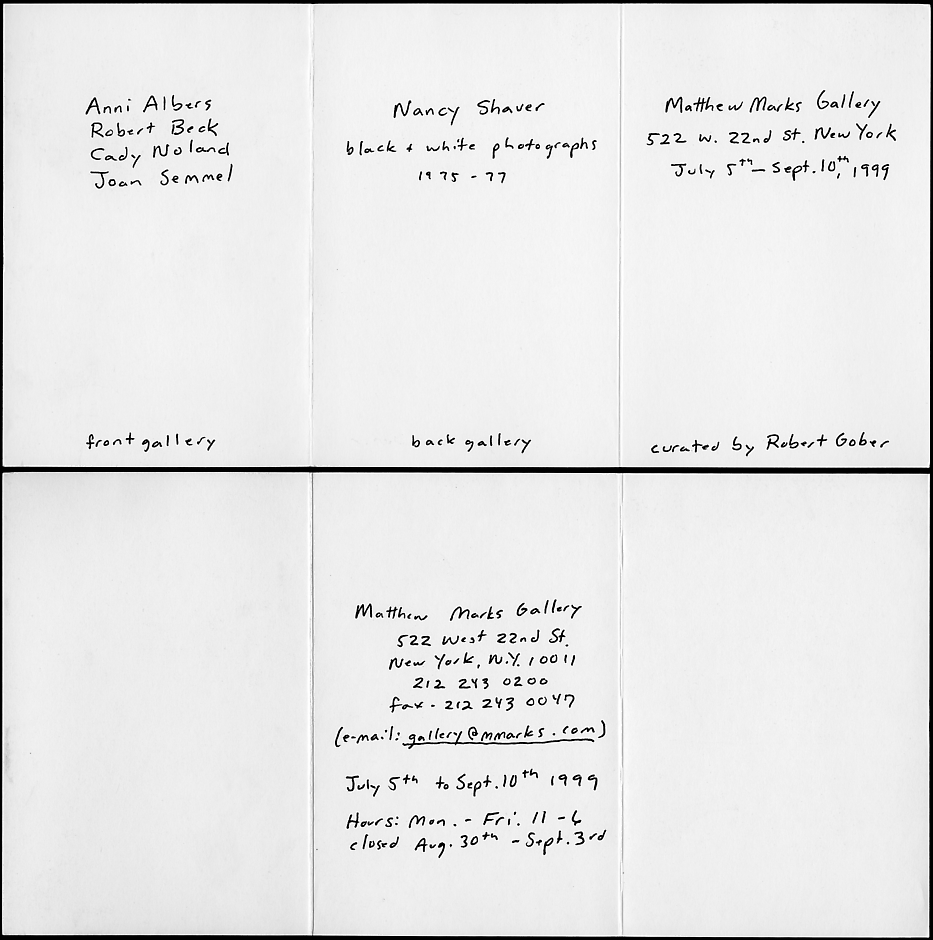 Anni Albers
Robert Beck
Cady Noland
Joan Semmel
front gallery
Nancy Shaver
black + white photographs
1975 - 77
back gallery
Matthew Marks Gallery
522 W. 22nd St. New York
July 5th – Sept. 10th, 1999
curated by Robert Gober
Matthew Marks Gallery
522 West 22nd St.
New York, N.Y. 10011
212 243 0200
fax - 212 243 0047
(e-mail: gallery@mmarks.com)
July 5th to Sept. 10th 1999
Hours: Mon. - Fri. 11 - 6
closed Aug. 30th - Sept. 3rd